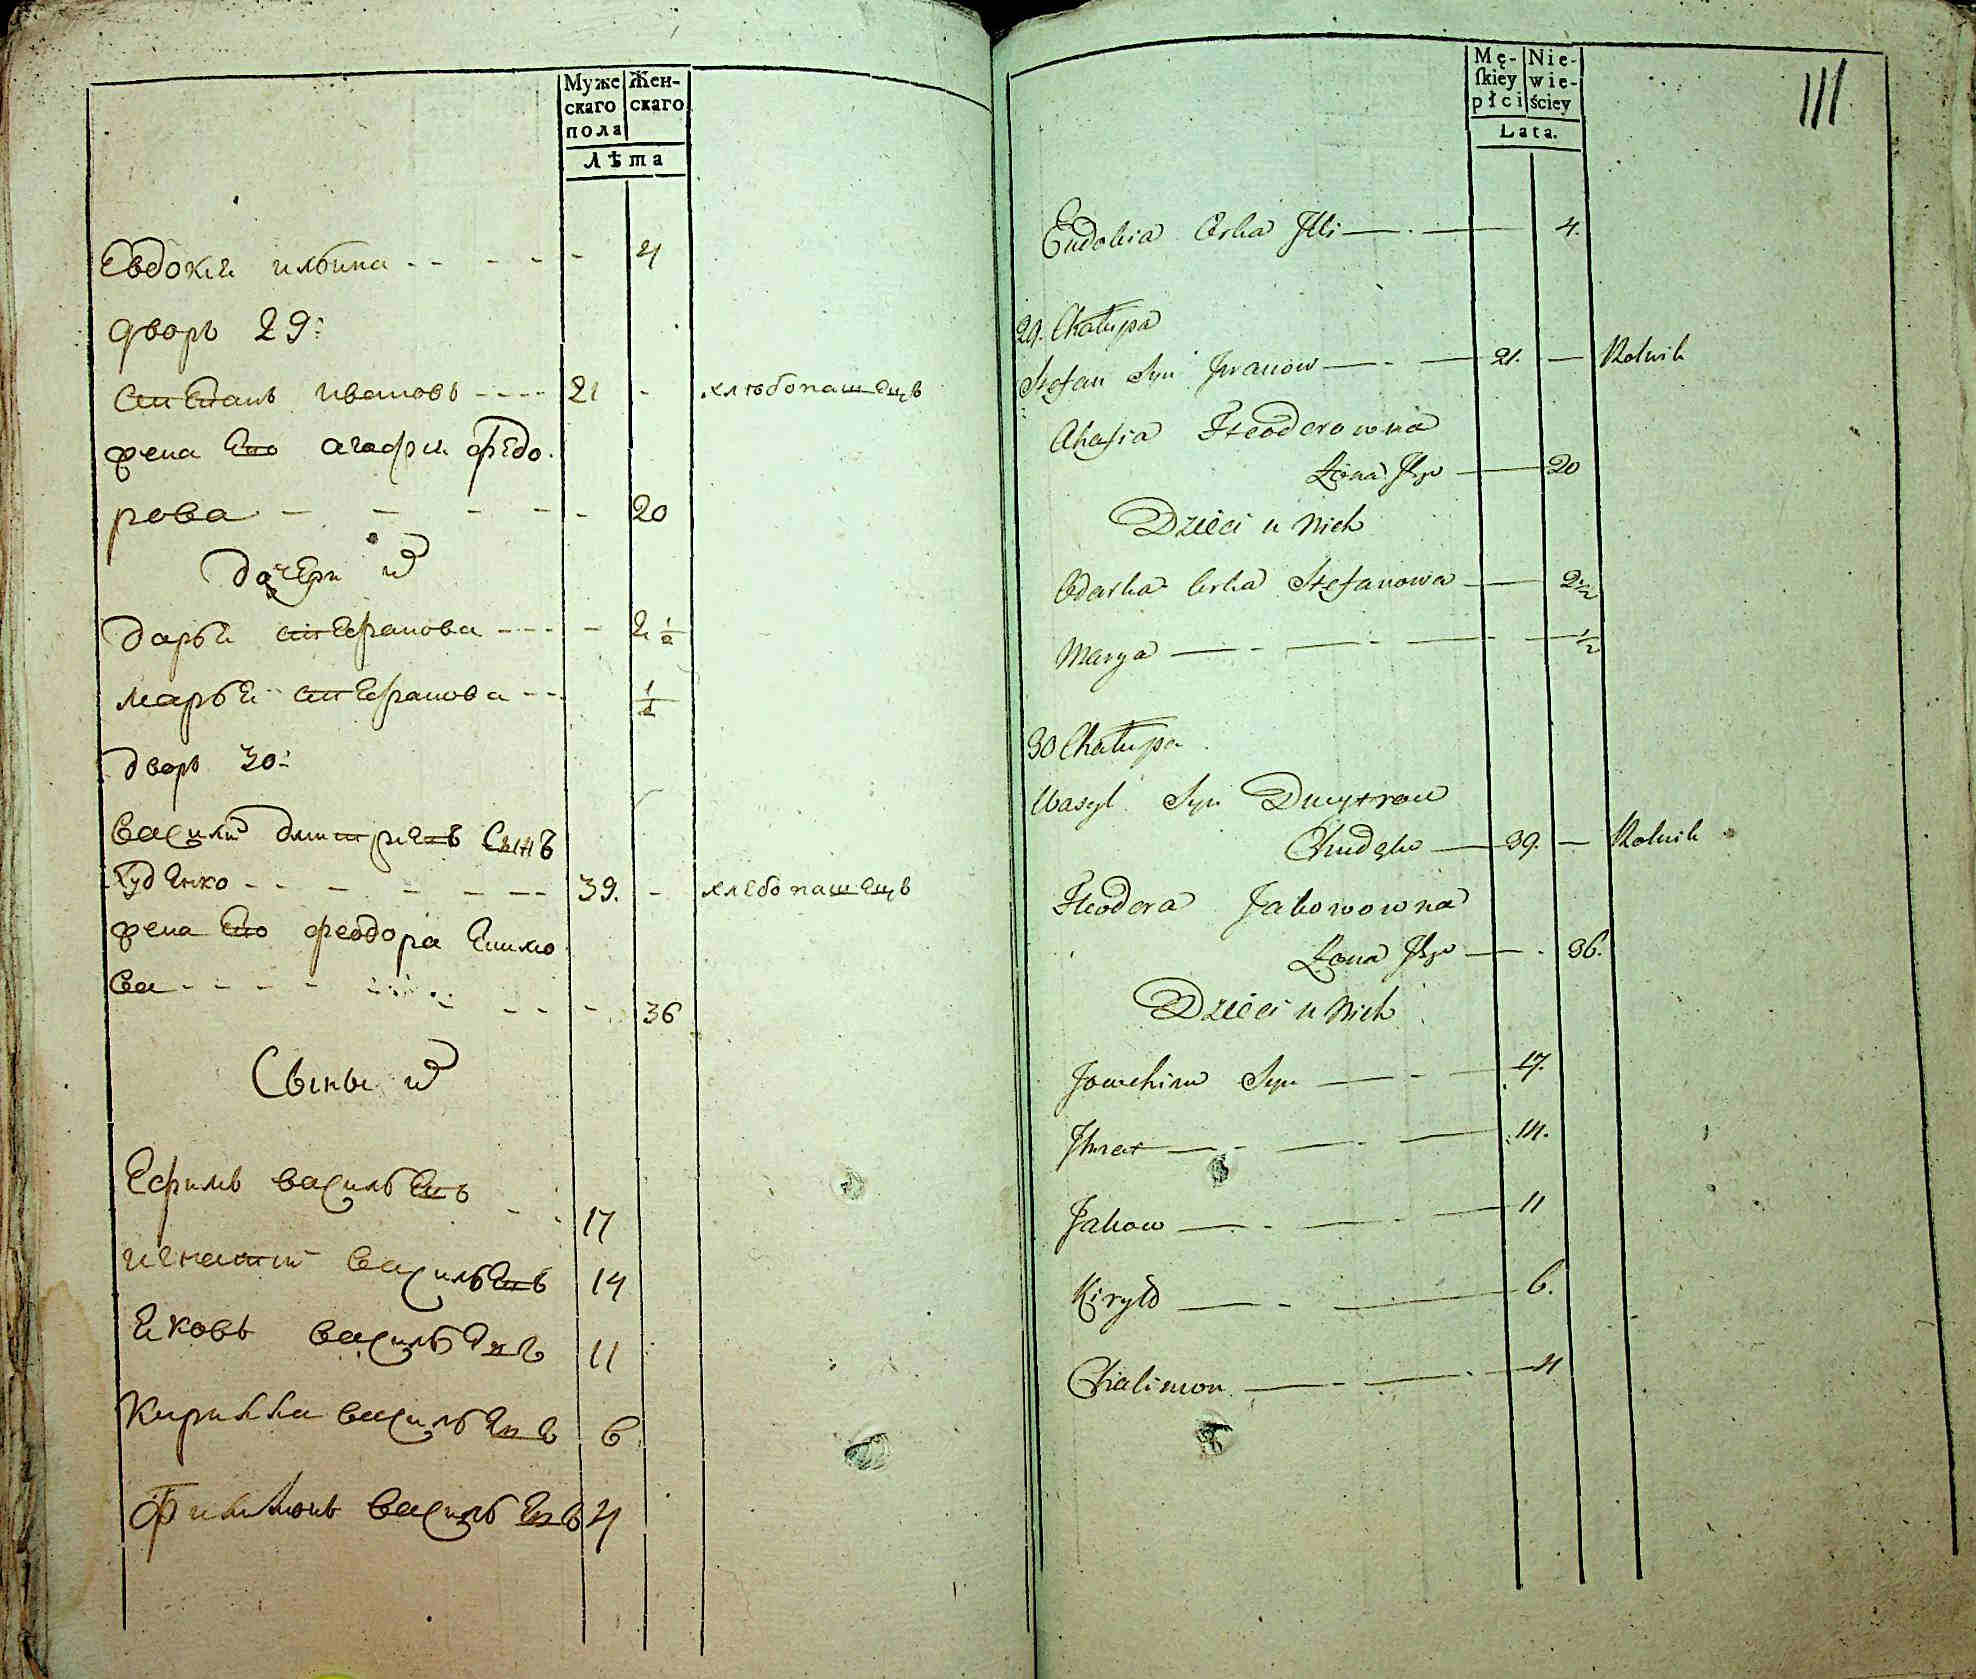 Муже
скаго
пола
Жен-
скаго
Лѣта
Евдокія ильина - - - - - 4
дворъ 29:
Степанъ ивановъ - - - - 21 - хлѣбопашецъ
жена Его агафия федо
рова - - - - - 20
дочери их
дарья стефанова - - - - 2 1/2
марья стефанова - - - 1/2
дворъ 30:
василий дмитриевъ Сынъ
худенко - - - - - - 39. - хлебопашецъ
жена Его феодора Екимо
ва - - - - - - - 36
Сыны их
Ефимъ васильевъ - - 17
игнатий васильевъ 14
Яковъ васильевъ 11
Кирилла васильевъ 6
Филимонъ васильевъ 4
Mę-
skiey
płci
Nie-
wie-
ściey
Lata.
111
Eudokia Crka Illi — · — 4.
29. Chałupa
Stefan Syn Iwanow — - — 21. — Rolnik
Ahafia Fteoderowna
Żona Jego — 20
Dzieci u Nich
Odarka Crka Stefanowa — 2 1/2
Marya — - — - — - — 1/2
30 Chałupa
Wasyl Syn Dmytrow
Chudęko — 39. — Rolnik
Fteodora Jakowowna
Żona Jego — - 36.
Dzieci u Nich
Joachim Syn — - — 17.
Ihnat — - — - — 14.
Jakow — - — - — 11
Kiryło — - — 6.
Chalimon — - — - — 4